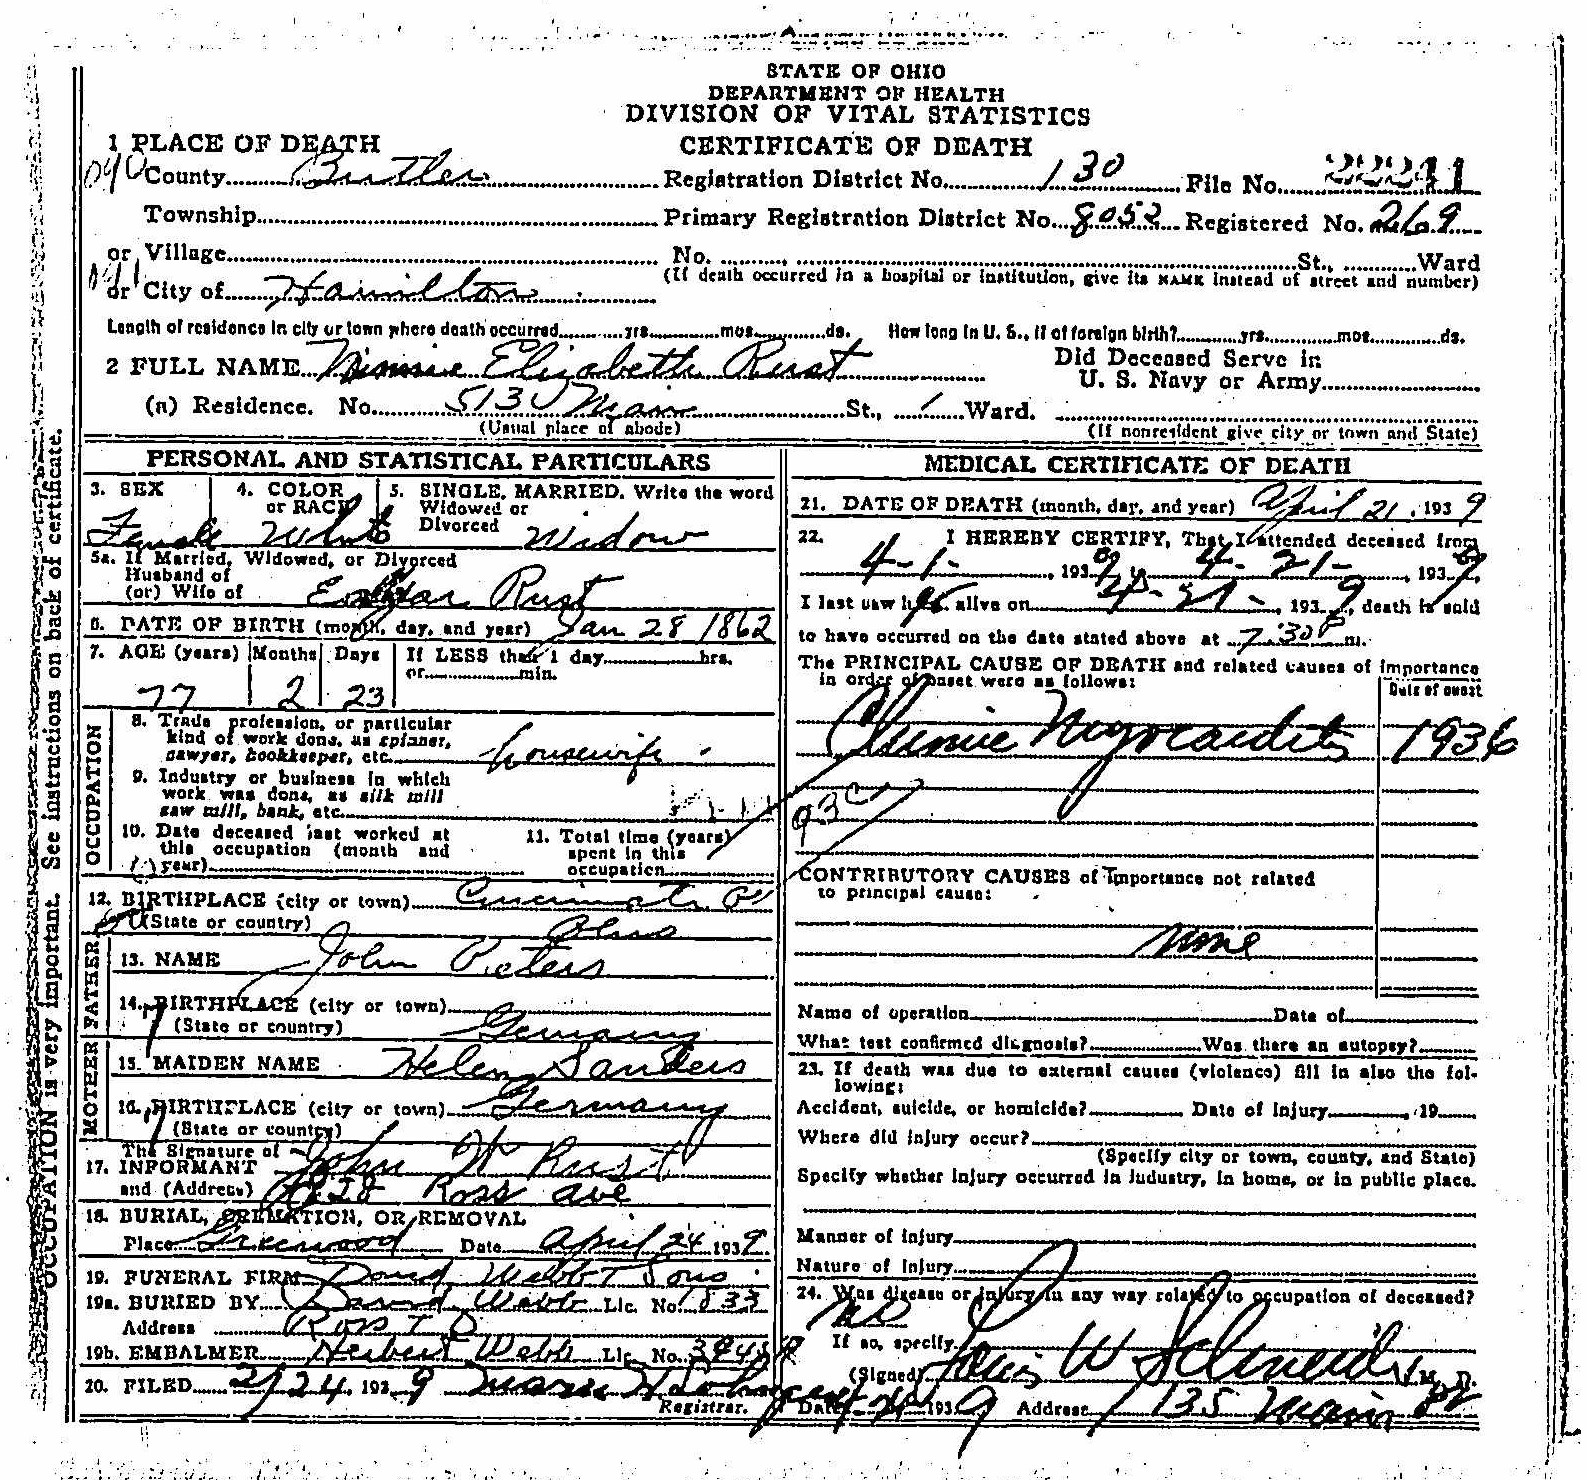 STATE OF OHIO
DEPARTMENT OF HEALTH
DIVISION OF VITAL STATISTICS
CERTIFICATE OF DEATH
1 PLACE OF DEATH
County Butler Registration District No. 130 File No. 22241
Township Primary Registration District No. 8052 Registered No. 269
or Village No. St., Ward
(If death occurred in a hospital or institution, give its NAME instead of street and number)
or City of Hamilton
Length of residence in city or town where death occurred yrs. mos. ds. How long in U. S., if of foreign birth? yrs. mos. ds.
2 FULL NAME Minnie Elizabeth Rust Did Deceased Serve in U. S. Navy or Army
(a) Residence. No. 513 Main St., 1 Ward.
(Usual place of abode) (If nonresident give city or town and State)
OCCUPATION is very important. See instructions on back of certificate.
PERSONAL AND STATISTICAL PARTICULARS
3. SEX 4. COLOR or RACE 5. SINGLE, MARRIED, Write the word Widowed or Divorced
Female White Widow
5a. If Married, Widowed, or Divorced
Husband of
(or) Wife of Rust
6. DATE OF BIRTH (month, day, and year) Jan 28 1862
7. AGE (years) Months Days If LESS than 1 day hrs.
or min.
77 2 23
OCCUPATION
8. Trade profession, or particular
kind of work done, as spinner,
sawyer, bookkeeper, etc. housewife
9. Industry or business in which
work was done, as silk mill
saw mill, bank, etc.
10. Date deceased last worked at
this occupation (month and
year)
11. Total time (years)
spent in this
occupation
12. BIRTHPLACE (city or town) Cincinnati O
(State or country) Ohio
FATHER
13. NAME John Peters
14. BIRTHPLACE (city or town)
(State or country) Germany
MOTHER
15. MAIDEN NAME Helen Sanders
16. BIRTHPLACE (city or town) Germany
(State or country)
The Signature of
17. INFORMANT John W Rust
and (Address) Ross Ave
18. BURIAL, CREMATION, OR REMOVAL
Place Greenwood Date April 24 1939
19. FUNERAL FIRM David Webb & Sons
19a. BURIED BY David Webb Lic. No. 1833
Address Ross O
19b. EMBALMER Herbert Webb Lic. No.
20. FILED 24, 1939
Registrar.
MEDICAL CERTIFICATE OF DEATH
21. DATE OF DEATH (month, day, and year) April 21, 1939
22. I HEREBY CERTIFY, That I attended deceased from
4-1-, 1939, to 4-21-, 1939,
I last saw her alive on 4-21-, 1939, death is said
to have occurred on the date stated above at 7:30P m.
The PRINCIPAL CAUSE OF DEATH and related causes of importance
in order of onset were as follows:
Date of onset
Chronic Myocarditis 1936
93c
CONTRIBUTORY CAUSES of importance not related
to principal cause:
none
Name of operation Date of
What test confirmed diagnosis? Was there an autopsy?
23. If death was due to external causes (violence) fill in also the fol-
lowing:
Accident, suicide, or homicide? Date of injury , 19
Where did injury occur?
(Specify city or town, county, and State)
Specify whether injury occurred in industry, in home, or in public place.
Manner of injury
Nature of injury
24. Was disease or injury in any way related to occupation of deceased?
no
If so, specify
(Signed) Louis W Schneider, M. D.
Date 1939 Address 135 Main St